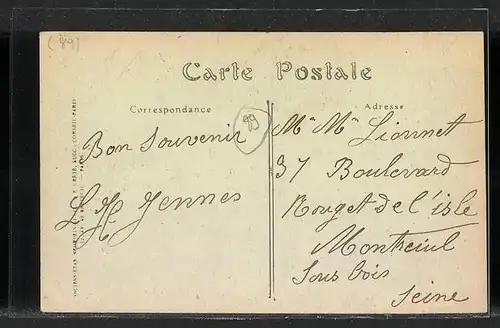 (89)
Carte Postale
Correspondance
Adresse
89
Bon Souvenir
Jennes
Mr Mme Lionnet
37 Boulevard
Rouget de l'isle
Montreiul
Sous bois
Seine